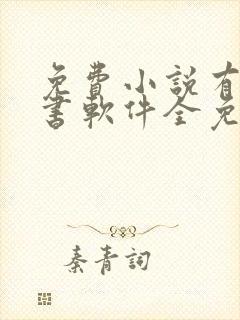 免費小說有
書軟件全免
秦青詞